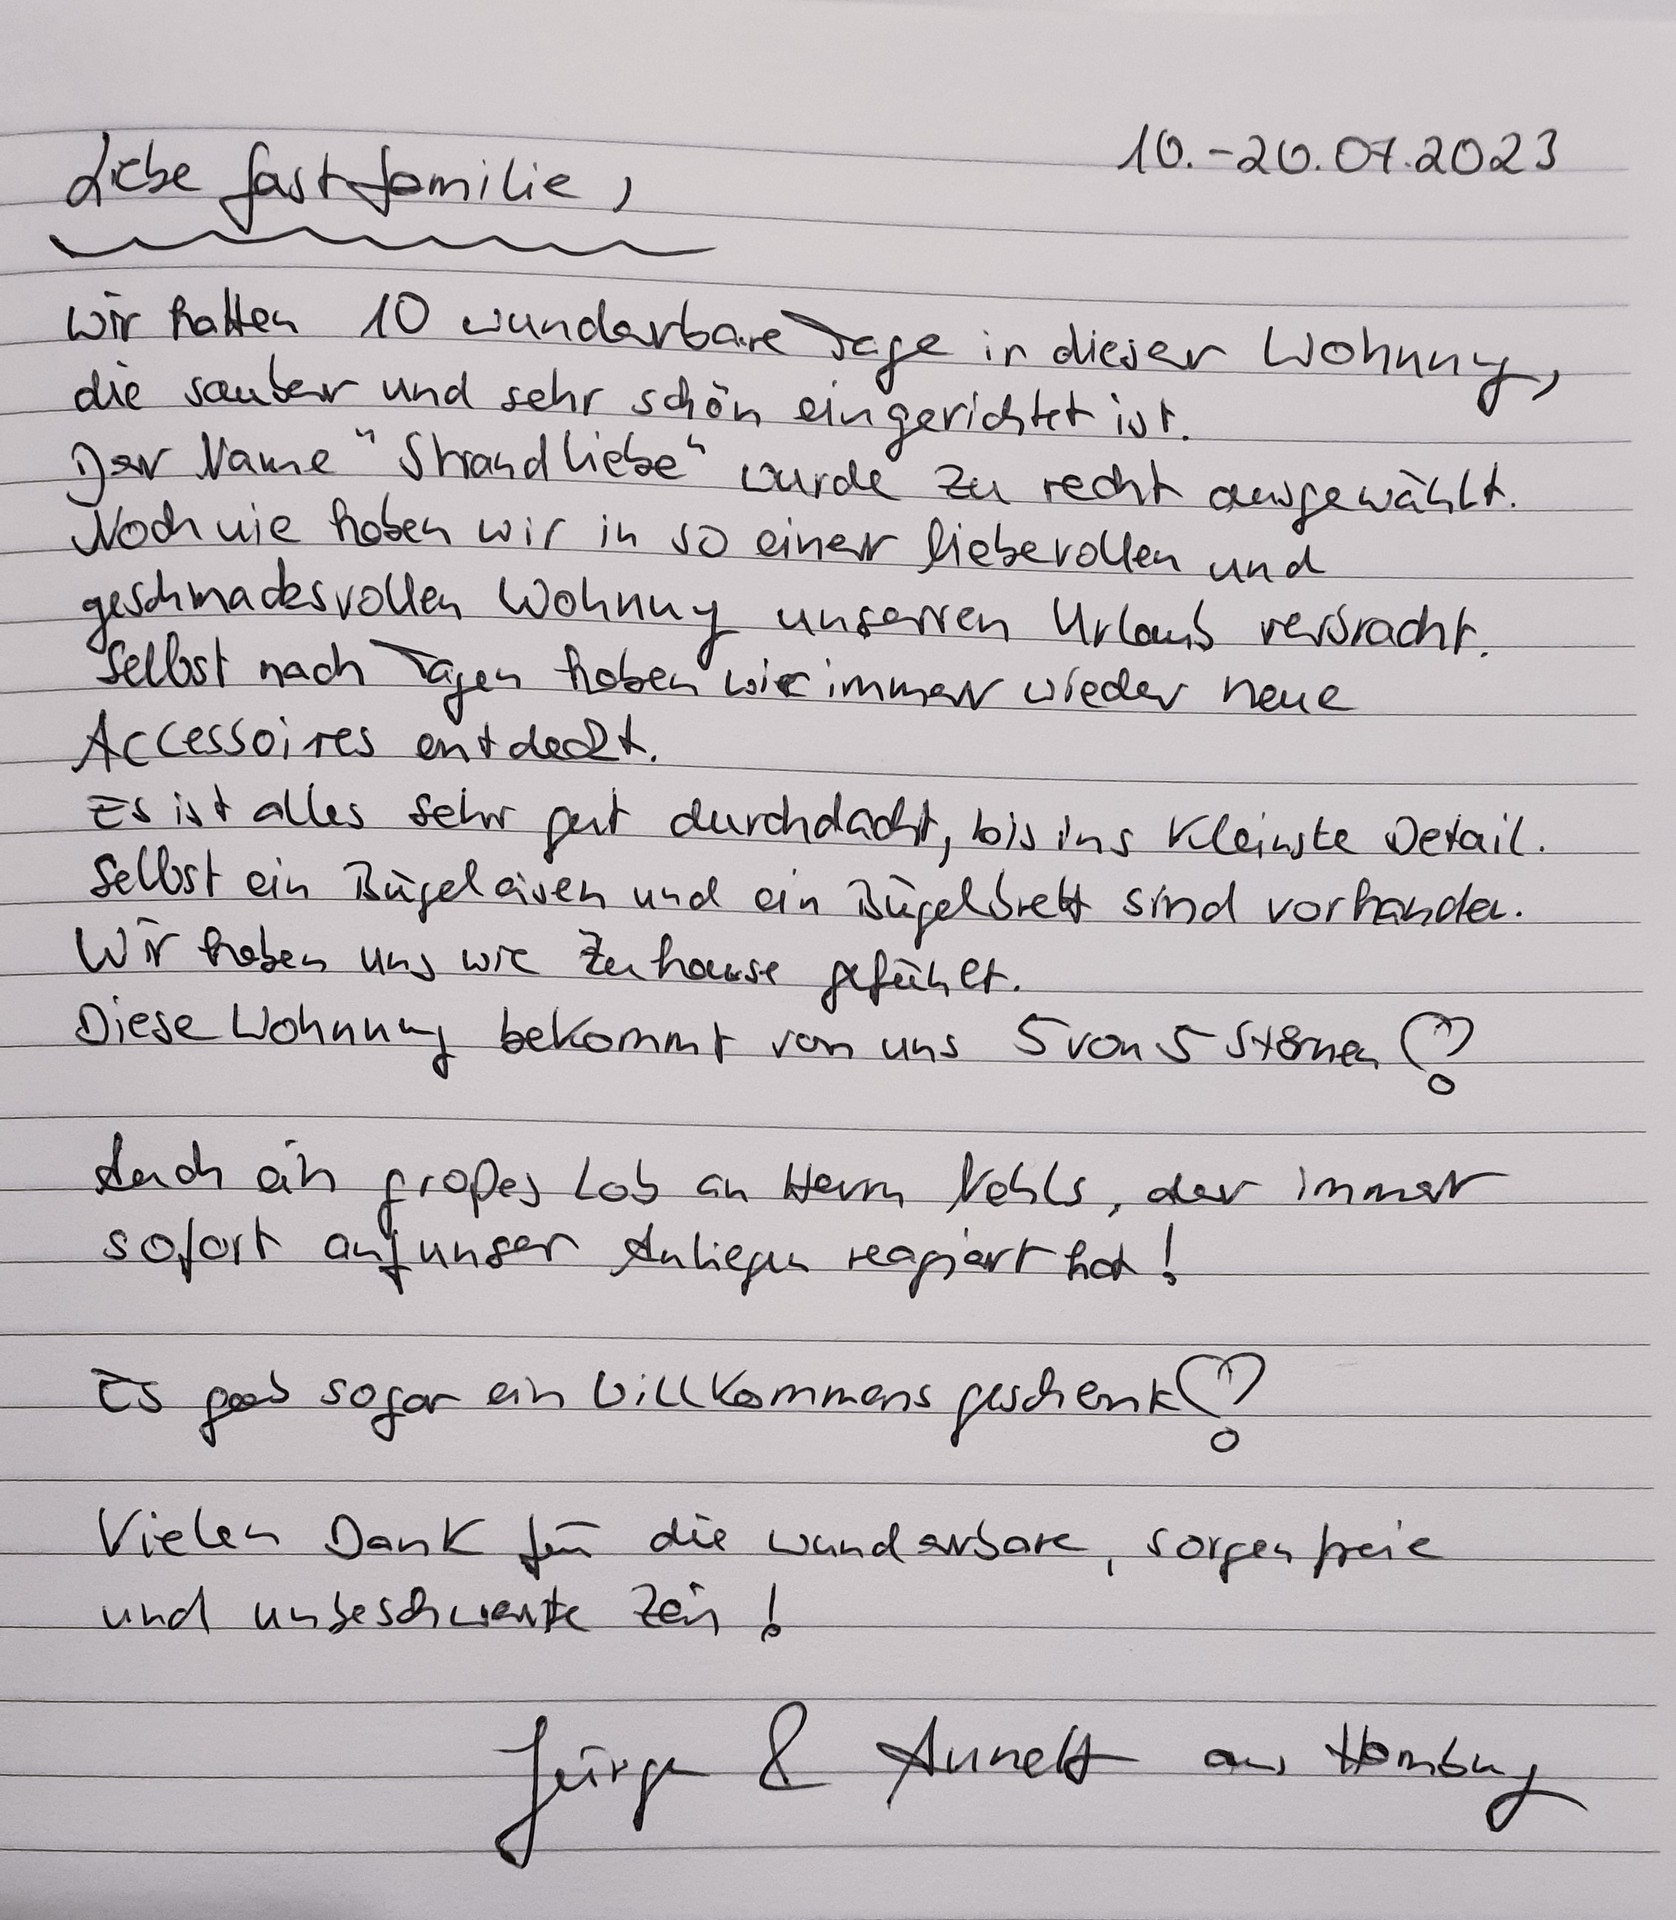 10.-20.07.2023
Liebe Gastfamilie,
wir hatten 10 wunderbare Tage in dieser Wohnung,
die sauber und sehr schön eingerichtet ist.
Der Name "Strandliebe" wurde zu recht ausgewählt.
Noch nie haben wir in so einer liebevollen und
geschmacksvollen Wohnung unseren Urlaub verbracht.
Selbst nach Tagen haben wir immer wieder neue
Accessoires entdeckt.
Es ist alles sehr gut durchdacht, bis ins Kleinste Detail.
Selbst ein Bügeleisen und ein Bügelbrett sind vorhanden.
Wir haben uns wie Zuhause gefühlt.
Diese Wohnung bekommt von uns 5 von 5 Sternen
Auch ein großes Lob an Herrn, der immer
sofort auf unser Anliegen reagiert hat!
Es gab sogar ein Willkommensgeschenk
Vielen Dank für die wunderbare, sorgenfreie
und unbeschwerte Zeit!
Jürgen & Annett aus